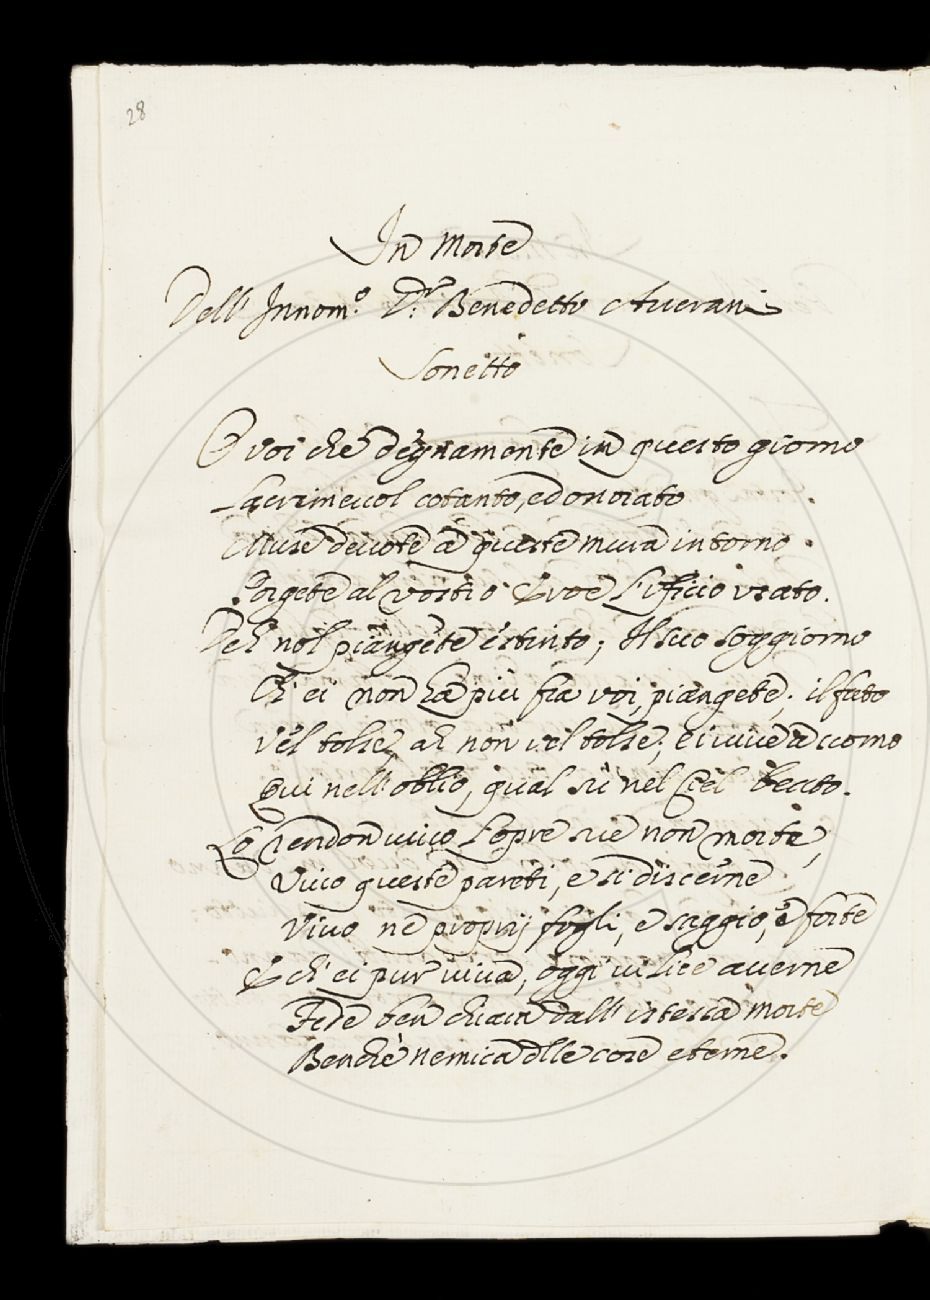 28
In Morte
Dell' Innom.º D.r Benedetto Averani
Sonetto
O voi che degnamente in questo giorno
Lacrimevol cotanto, ed onorato
Muse devote a queste mura intorno
Porgete al vostro Eroe l'ufficio usato.
Deh nol piangete estinto; Il suo soggiorno
Ch' ei non ha più fra voi, piangete; il fato
Vel tolse, ah non vel tolse; Ei vive a scorno
Qui nell' oblio, qual sù nel Ciel beato.
Lo rendon vivo l'opre sue non morte,
Vivo queste pareti, e si discerne
Vivo ne proprij fogli, e saggio, e forte
E ch' ei pur viva, oggi vi lice averne
Fede ben chiara dall' istessa Morte
Benchè nemica dlle cose eterne.